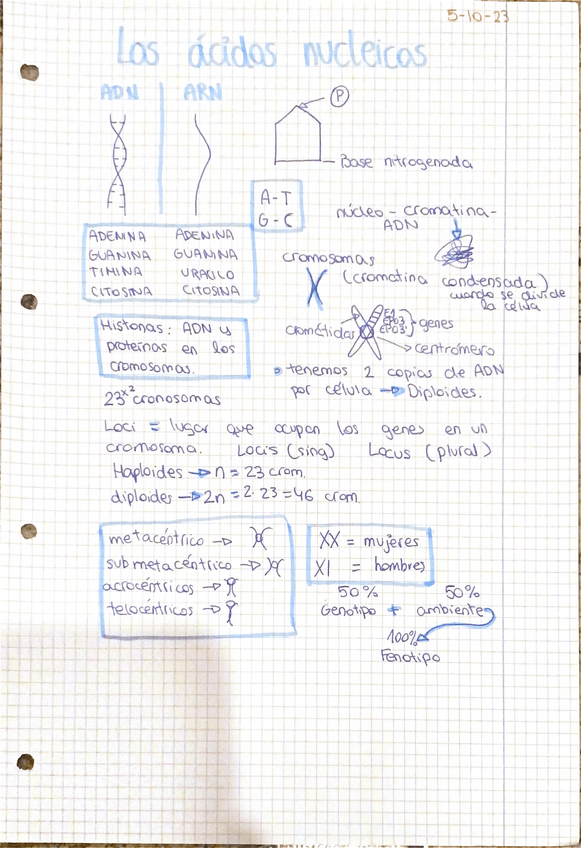 5-10-23
Los ácidos nucleicos
ADN ARN
P
Base nitrogenada
A-T
G-C
ADENINA ADENINA
GUANINA GUANINA
TIMINA URACILO
CITOSINA CITOSINA
núcleo - cromatina -
ADN
cromosomas
(cromatina condensada)
cuando se divide
la célula
Histonas: ADN y
proteínas en los
cromosomas.
cromátidas
EPO3
genes
centrómero
• tenemos 2 copias de ADN
por célula → Diploides.
23x2 cronosomas
Loci = lugar que ocupan los genes en un
cromosoma. Locis (sing) Locus (plural)
Haploides → n = 23 crom.
diploides → 2n = 2·23 = 46 crom.
metacéntrico →
submetacéntrico →
acrocéntricos →
telocéntricos →
XX = mujeres
XI = hombres
50% 50%
Genotipo + ambiente
100%
Fenotipo